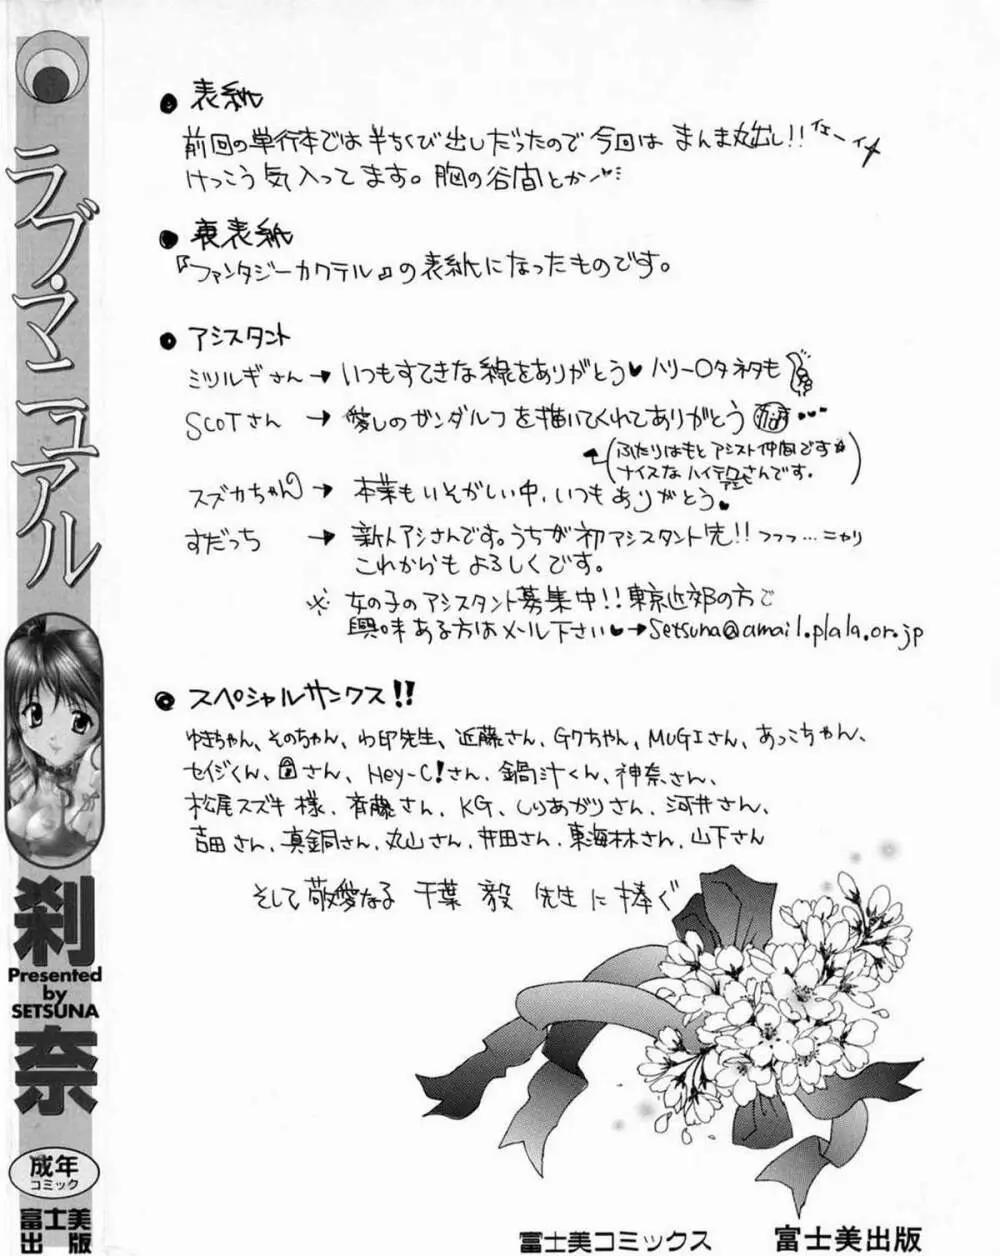 ラブ・マニュアル
刹奈
Presented
by
SETSUNA
成年
コミック
富士美
出版
● 表紙
前回の単行本では半ちくび出しだったので今回は まんま丸出し!! イェーイ
けっこう気入ってます。胸の谷間とか…
● 裏表紙
『ファンタジーカクテル』の表紙になったものです。
● アシスタント
ミツルギさん→いつもすてきな線をありがとう♥ ハリー〇タネタも
SCOTさん → 愛しのガンダルフを描いてくれてありがとう
(ふたりはもとアシスト仲間です☆
ナイスなハイテクアシさんです。)
スズカちゃん → 本業もいそがしい中、いつもありがとう♥
すだっち → 新人アシさんです。うちが初アシスタント先!! フフフ…ニヤリ
これからもよろしくです。
※ 女の子のアシスタント募集中!! 東京近郊の方で
興味ある方はメール下さい♥→Setsuna@amail.plala.or.jp
● スペシャルサンクス!!
ゆきちゃん、そのちゃん、わ印先生、近藤さん、Gクちゃん、MUGIさん、あっこちゃん、
セイジくん、さん、Hey-C!さん、鍋汁くん、神奈さん、
松尾スズキ様、斉藤さん、KG、しりあがりさん、河井さん、
吉田さん、真鍋さん、丸山さん、井田さん、東海林さん、山下さん
そして敬愛なる 千葉 毅 先生に捧ぐ
富士美コミックス 富士美出版